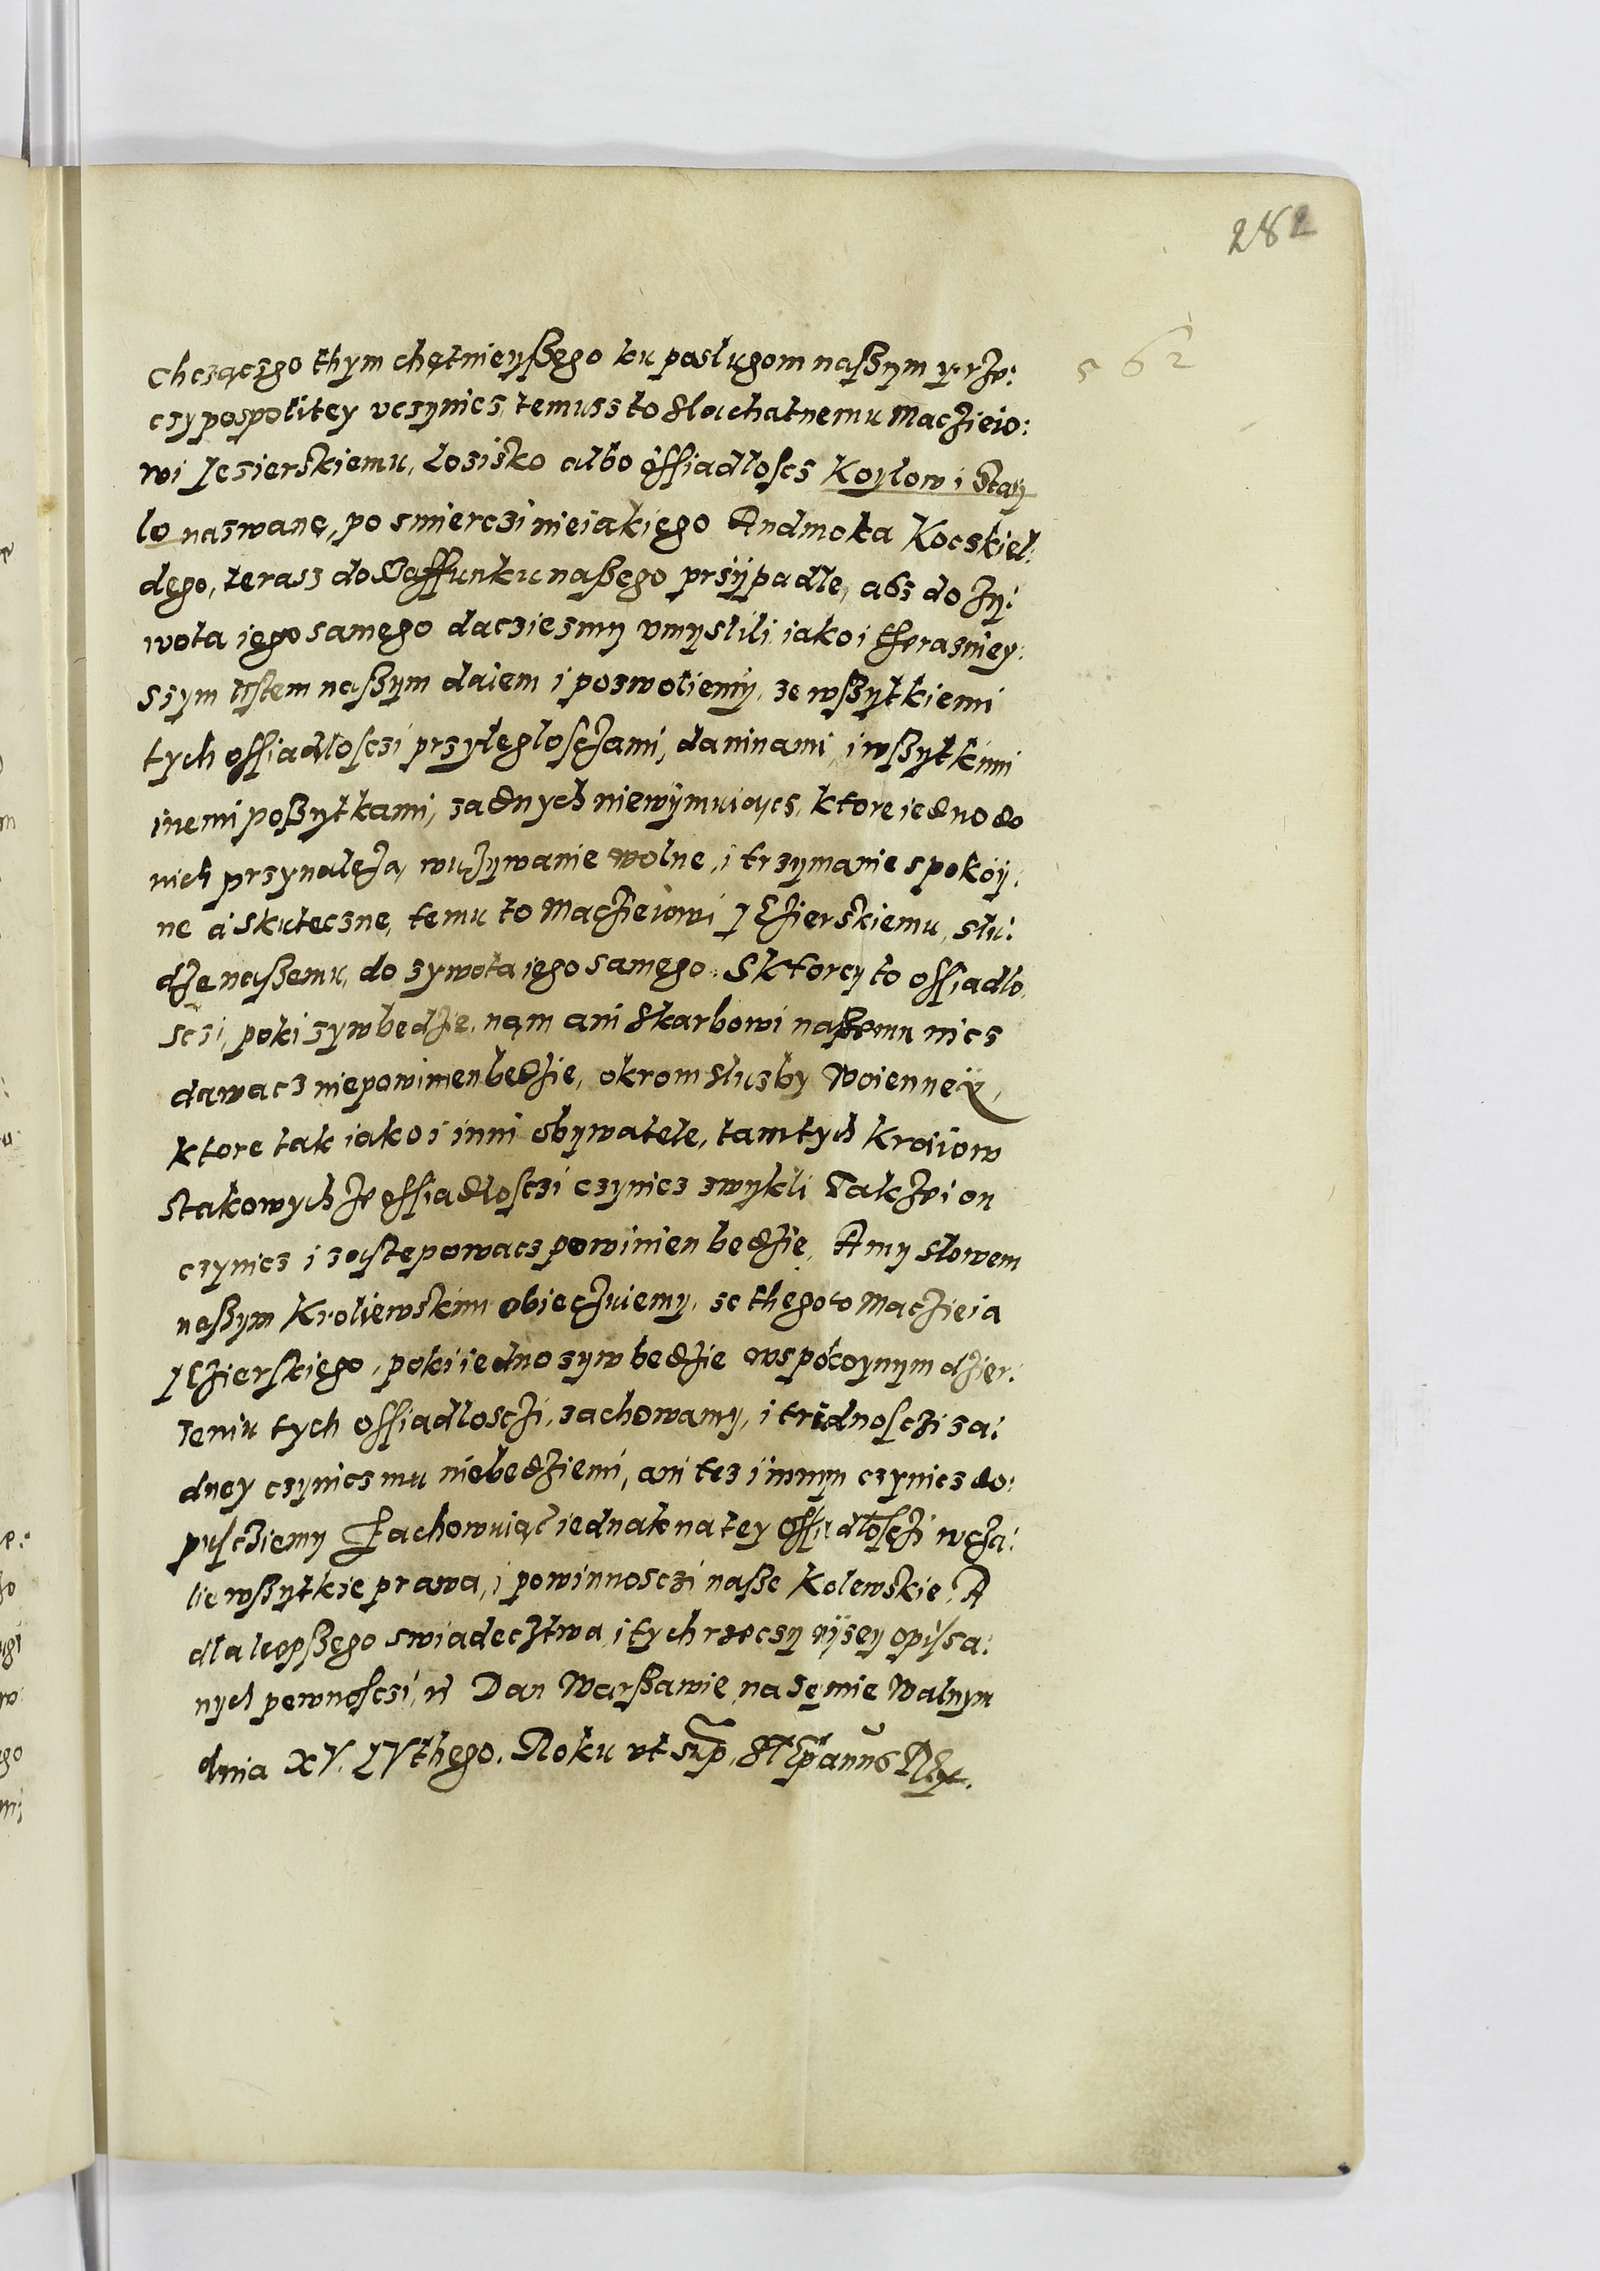 282
562
chcząc go thym chętnieyßego ku posługom naßym y rze:
czypospolitey vczynicz, temusz to Slachatnemu Maczieio:
wi Jesierskiemu, Łozisko albo ossiadłoscz Koylow i Stay
lo nazwane, po smierczi nieiakiego Andmoka Kocskiel:
dego, terasz do Szaffunku naßego przypadłe, asz do zy:
wota iego samego daczieszmy vmyslili iako i therazniey:
szym listem naßym daiem i pozwoliemy, ze wßytkiemi
tych ossiadłosczi przyległosczami, daninami, i wßytkimi
inemi poßytkami, zadnych niewymuiącz, ktore iedno do
nich przynależą, wużywanie wolne, i trzymanie spokoy:
ne a skuteczne, temu to Maczieiowi Jezierskiemu, słu:
dze naßemu, do zywota iego samego. Sktorey to ossiadło
sczi, poki zyw bedzie, nąm ani Skarbowi naßemu nicz
dawacz niepowinien bedzie, okrom słuzby Woienney,
ktore tak iako i inni obywatele, tamtych kraiow
stakowychze ossiadłosczi czynicz zwykli Takze i on
czynicz i zastępowacz powinien bedzie, A my słowem
naßym Kroliewskim obieczuiemy, ze thego to Maczieia
Jezierskiego, poki iedno zyw bedzie wspokoynym dzier:
zeniu tych ossiadlosczi, zachowamy, i trudnosczi za:
dney czynicz mu niebedziemi, ani tez innym czynicz do:
puscziemy Zachowuiąc iednak na tey ossiadłosczi wcza:
lie wßytkie prawa, i powinnosczi naße Kolewskie, A
dla liepßego swiadecztwa i tych rzeczy wyzey opisa:
nych pewnosczi, Dan Warßawie na Semie Walnym
dnia XV. LVthego. Roku vt sup. Stephanus Rex.